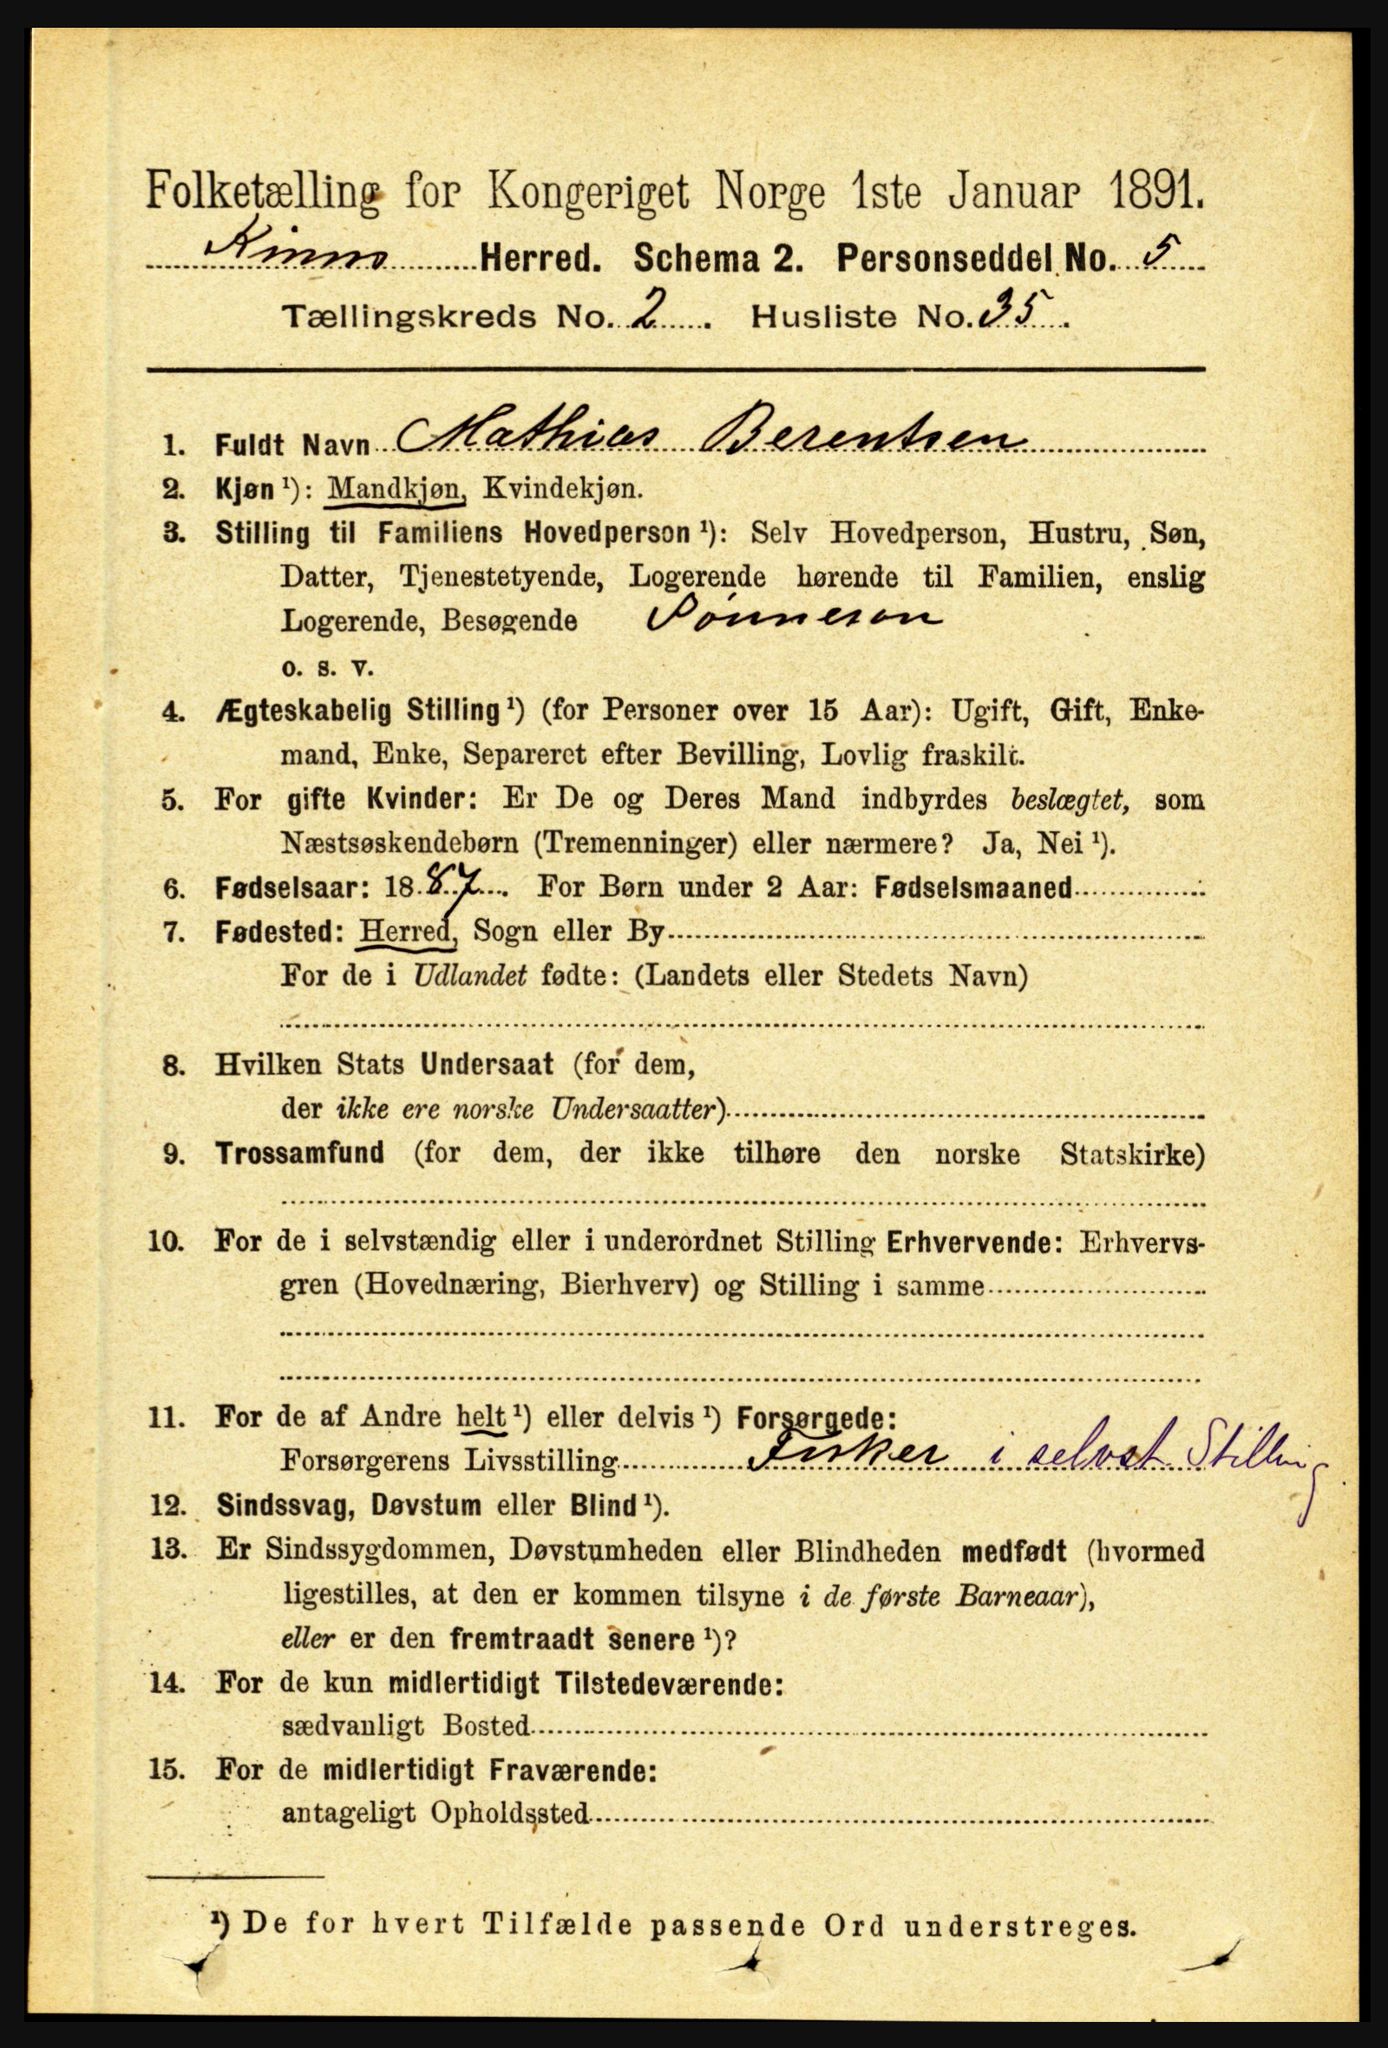 Folketælling for Kongeriget Norge 1ste Januar 1891.
Kinns Herred. Schema 2. Personseddel No. 5
Tællingskreds No. 2. Husliste No. 35.
1. Fuldt Navn Mathias Berentsen
2. Kjøn ¹): Mandkjøn, Kvindekjøn.
3. Stilling til Familiens Hovedperson ¹): Selv Hovedperson, Hustru, Søn,
Datter, Tjenestetyende, Logerende hørende til Familien, enslig
Logerende, Besøgende Sønneson
o. s. v.
4. Ægteskabelig Stilling ¹) (for Personer over 15 Aar): Ugift, Gift, Enke-
mand, Enke, Separeret efter Bevilling, Lovlig fraskilt.
5. For gifte Kvinder: Er De og Deres Mand indbyrdes beslægtet, som
Næstsøskendebørn (Tremenninger) eller nærmere? Ja, Nei ¹).
6. Fødselsaar: 1887. For Børn under 2 Aar: Fødselsmaaned
7. Fødested: Herred, Sogn eller By
For de i Udlandet fødte: (Landets eller Stedets Navn)
8. Hvilken Stats Undersaat (for dem,
der ikke ere norske Undersaatter)
9. Trossamfund (for dem, der ikke tilhøre den norske Statskirke)
10. For de i selvstændig eller i underordnet Stilling Erhvervende: Erhvervs-
gren (Hovednæring, Bierhverv) og Stilling i samme
11. For de af Andre helt ¹) eller delvis ¹) Forsørgede:
Forsørgerens Livsstilling Fisker i selvst Stilling
12. Sindssvag, Døvstum eller Blind ¹).
13. Er Sindssygdommen, Døvstumheden eller Blindheden medfødt (hvormed
ligestilles, at den er kommen tilsyne i de første Barneaar),
eller er den fremtraadt senere ¹)?
14. For de kun midlertidigt Tilstedeværende:
sædvanligt Bosted
15. For de midlertidigt Fraværende:
antageligt Opholdssted
¹) De for hvert Tilfælde passende Ord understreges.